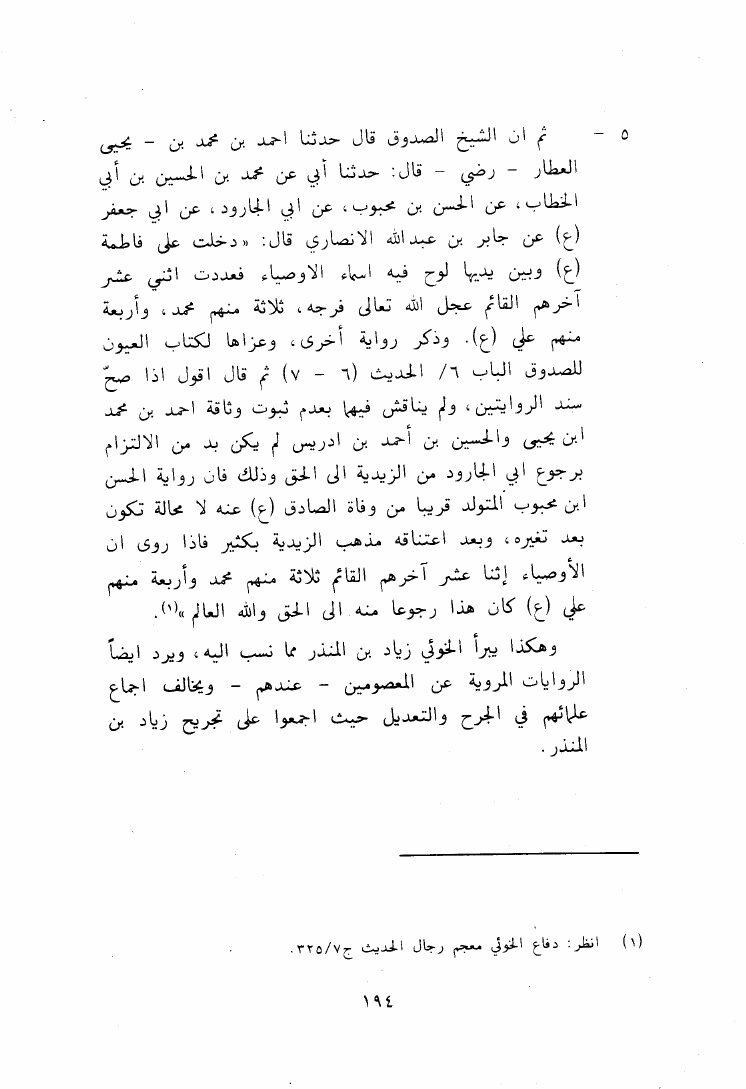 ٥ - ثم ان الشيخ الصدوق قال حدثنا احمد بن محمد بن - يحيى
العطار - رضي - قال: حدثنا أبي عن محمد بن الحسين بن أبي
الخطاب، عن الحسن بن محبوب، عن ابي الجارود، عن ابي جعفر
(ع) عن جابر بن عبدالله الانصاري قال: «دخلت على فاطمة
(ع) وبين يديها لوح فيه اسماء الاوصياء فعددت اثني عشر
آخرهم القائم عجل الله تعالى فرجه، ثلاثة منهم محمد، وأربعة
منهم علي (ع). وذكر رواية أخرى، وعزاها لكتاب العيون
للصدوق الباب ٦/ الحديث (٦ - ٧) ثم قال اقول اذا صحّ
سند الروايتين، ولم يناقش فيهما بعدم ثبوت وثاقة احمد بن محمد
ابن يحيى والحسين بن أحمد بن ادريس لم يكن بد من الالتزام
برجوع ابي الجارود من الزيدية الى الحق وذلك فان رواية الحسن
ابن محبوب المتولد قريبا من وفاة الصادق (ع) عنه لا محالة تكون
بعد تغيره، وبعد اعتناقه مذهب الزيدية بكثير فاذا روى ان
الأوصياء إثنا عشر آخرهم القائم ثلاثة منهم محمد وأربعة منهم
علي (ع) كان هذا رجوعا منه الى الحق والله العالم»(١).
وهكذا يبرأ الخوئي زياد بن المنذر مما نسب اليه، ويرد ايضاً
الروايات المروية عن المعصومين - عندهم - ويخالف اجماع
علمائهم في الجرح والتعديل حيث اجمعوا على تجريح زياد بن
المنذر.
(١) انظر: دفاع الخوئي معجم رجال الحديث ج٣٢٥/٧.
١٩٤